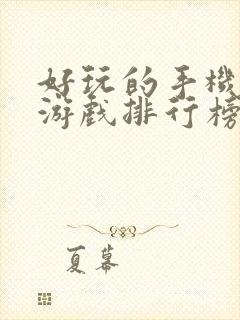 好玩的手機
游戲排行榜
夏幕